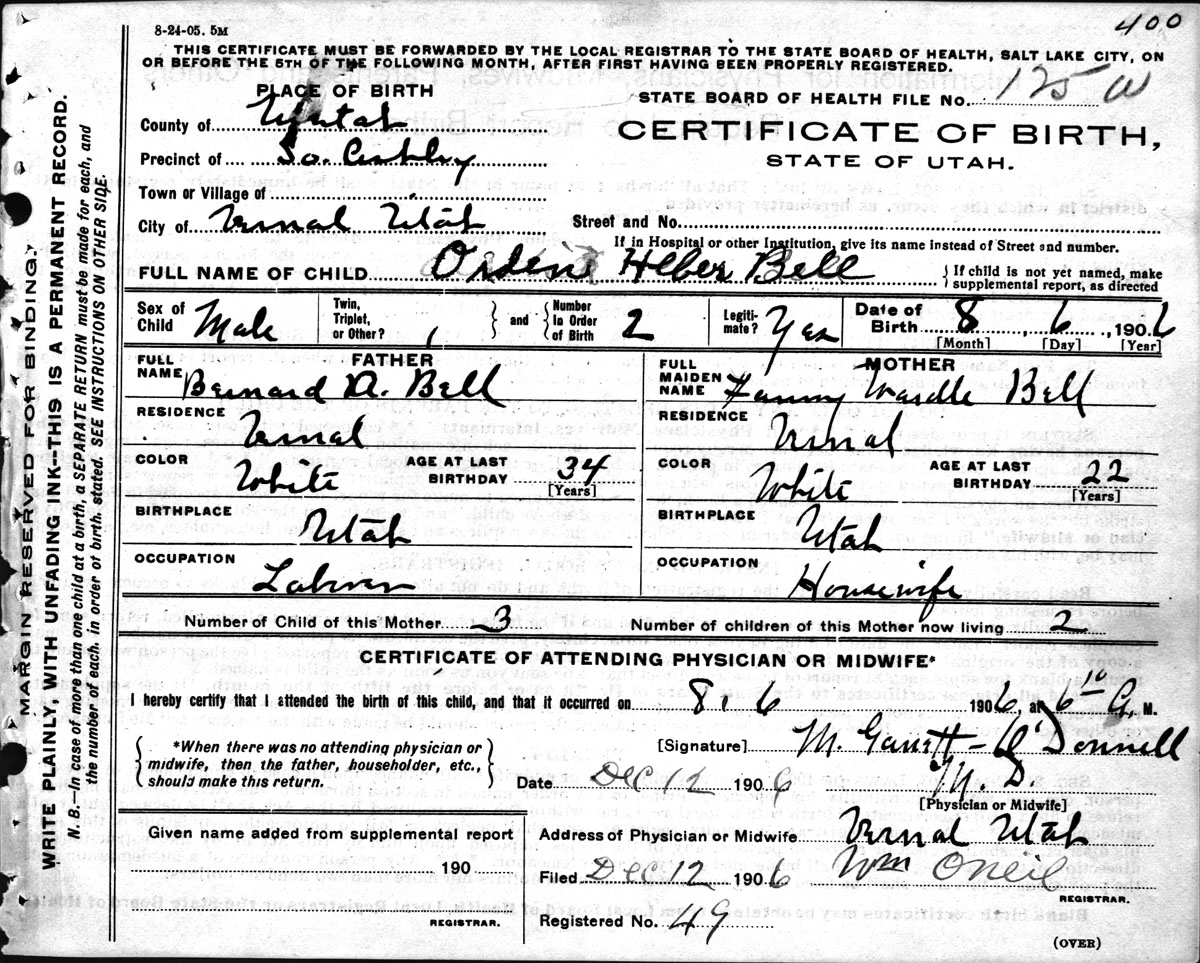 400
8-24-05. 5M
THIS CERTIFICATE MUST BE FORWARDED BY THE LOCAL REGISTRAR TO THE STATE BOARD OF HEALTH, SALT LAKE CITY, ON
OR BEFORE THE 5TH OF THE FOLLOWING MONTH, AFTER FIRST HAVING BEEN PROPERLY REGISTERED.
PLACE OF BIRTH
STATE BOARD OF HEALTH FILE NO. 125 W
County of Uintah
CERTIFICATE OF BIRTH,
STATE OF UTAH.
Precinct of So. Ashley
Town or Village of
City of Vernal Utah
Street and No.
If in Hospital or other Institution, give its name instead of Street and number.
FULL NAME OF CHILD Heber Bell
If child is not yet named, make supplemental report, as directed
Sex of Child Male Twin, Triplet, or Other? 1 and Number In Order of Birth 2 Legiti-mate? Yes Date of Birth 8 6, 1906
[Month] [Day] [Year]
FATHER MOTHER
FULL NAME Bernard A. Bell FULL MAIDEN NAME Fanny Wardle Bell
RESIDENCE Vernal RESIDENCE Vernal
COLOR White AGE AT LAST BIRTHDAY 34 [Years] COLOR White AGE AT LAST BIRTHDAY 22 [Years]
BIRTHPLACE Utah BIRTHPLACE Utah
OCCUPATION Laborer OCCUPATION Housewife
Number of Child of this Mother 3 Number of children of this Mother now living 2
CERTIFICATE OF ATTENDING PHYSICIAN OR MIDWIFE*
I hereby certify that I attended the birth of this child, and that it occurred on 8. 6 1906, at 6 10 A. M.
*When there was no attending physician or midwife, then the father, householder, etc., should make this return.
[Signature] M. Garrett-O'Donnell
M. D.
Date Dec 12 1906
[Physician or Midwife]
Given name added from supplemental report
190
REGISTRAR.
Address of Physician or Midwife Vernal Utah
Filed Dec 12 1906 Wm ONeil
REGISTRAR.
Registered No. 49
(OVER)
MARGIN RESERVED FOR BINDING.
WRITE PLAINLY, WITH UNFADING INK--THIS IS A PERMANENT RECORD.
N. B.—In case of more than one child at a birth, a SEPARATE RETURN must be made for each, and
the number of each, in order of birth, stated. SEE INSTRUCTIONS ON OTHER SIDE.